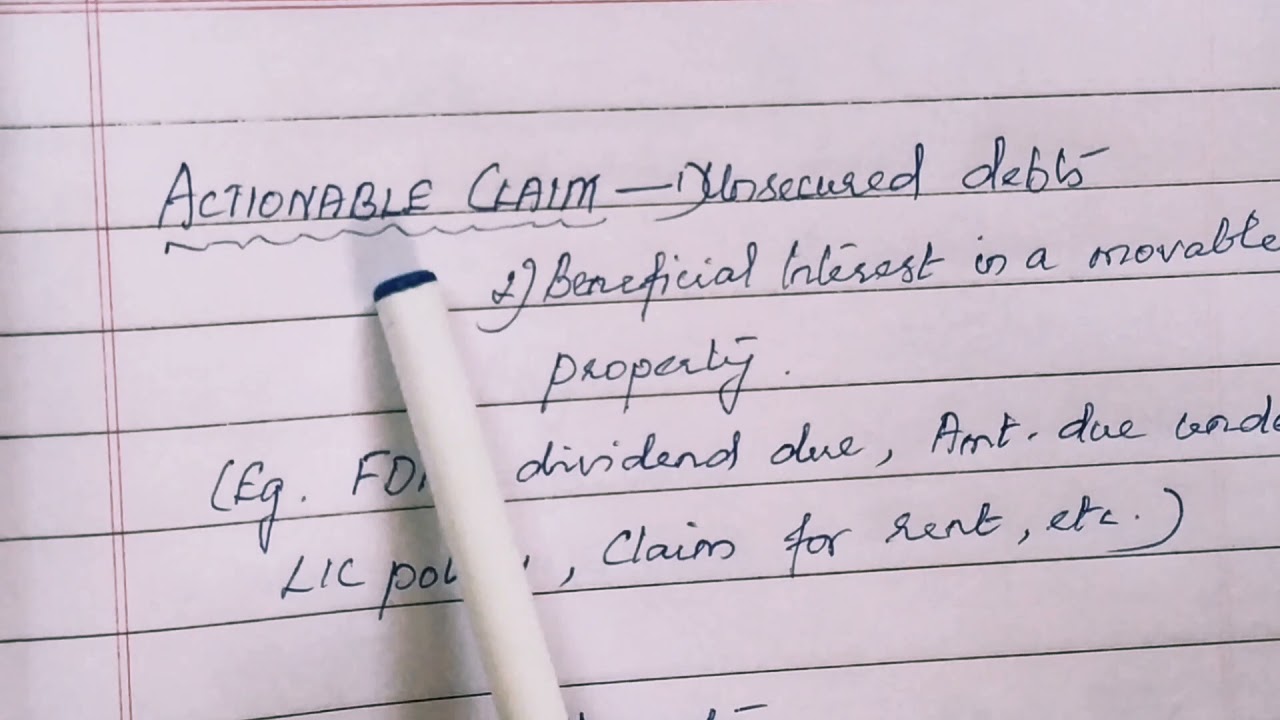 ACTIONABLE CLAIM — 1) Unsecured debts
2) Beneficial Interest in a movable
property.
(Eg. dividend due, Amt. due
LIC , Claim for rent, etc.)